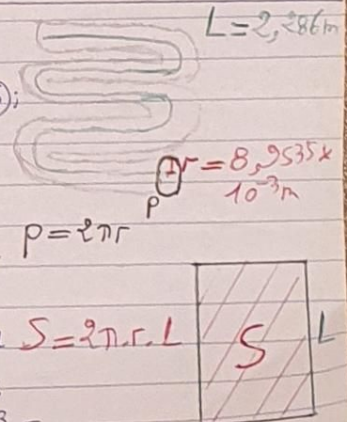 L=2,286m
r=8,9535x
10⁻³m
P
P=2πr
S=2π.r.L
S
L